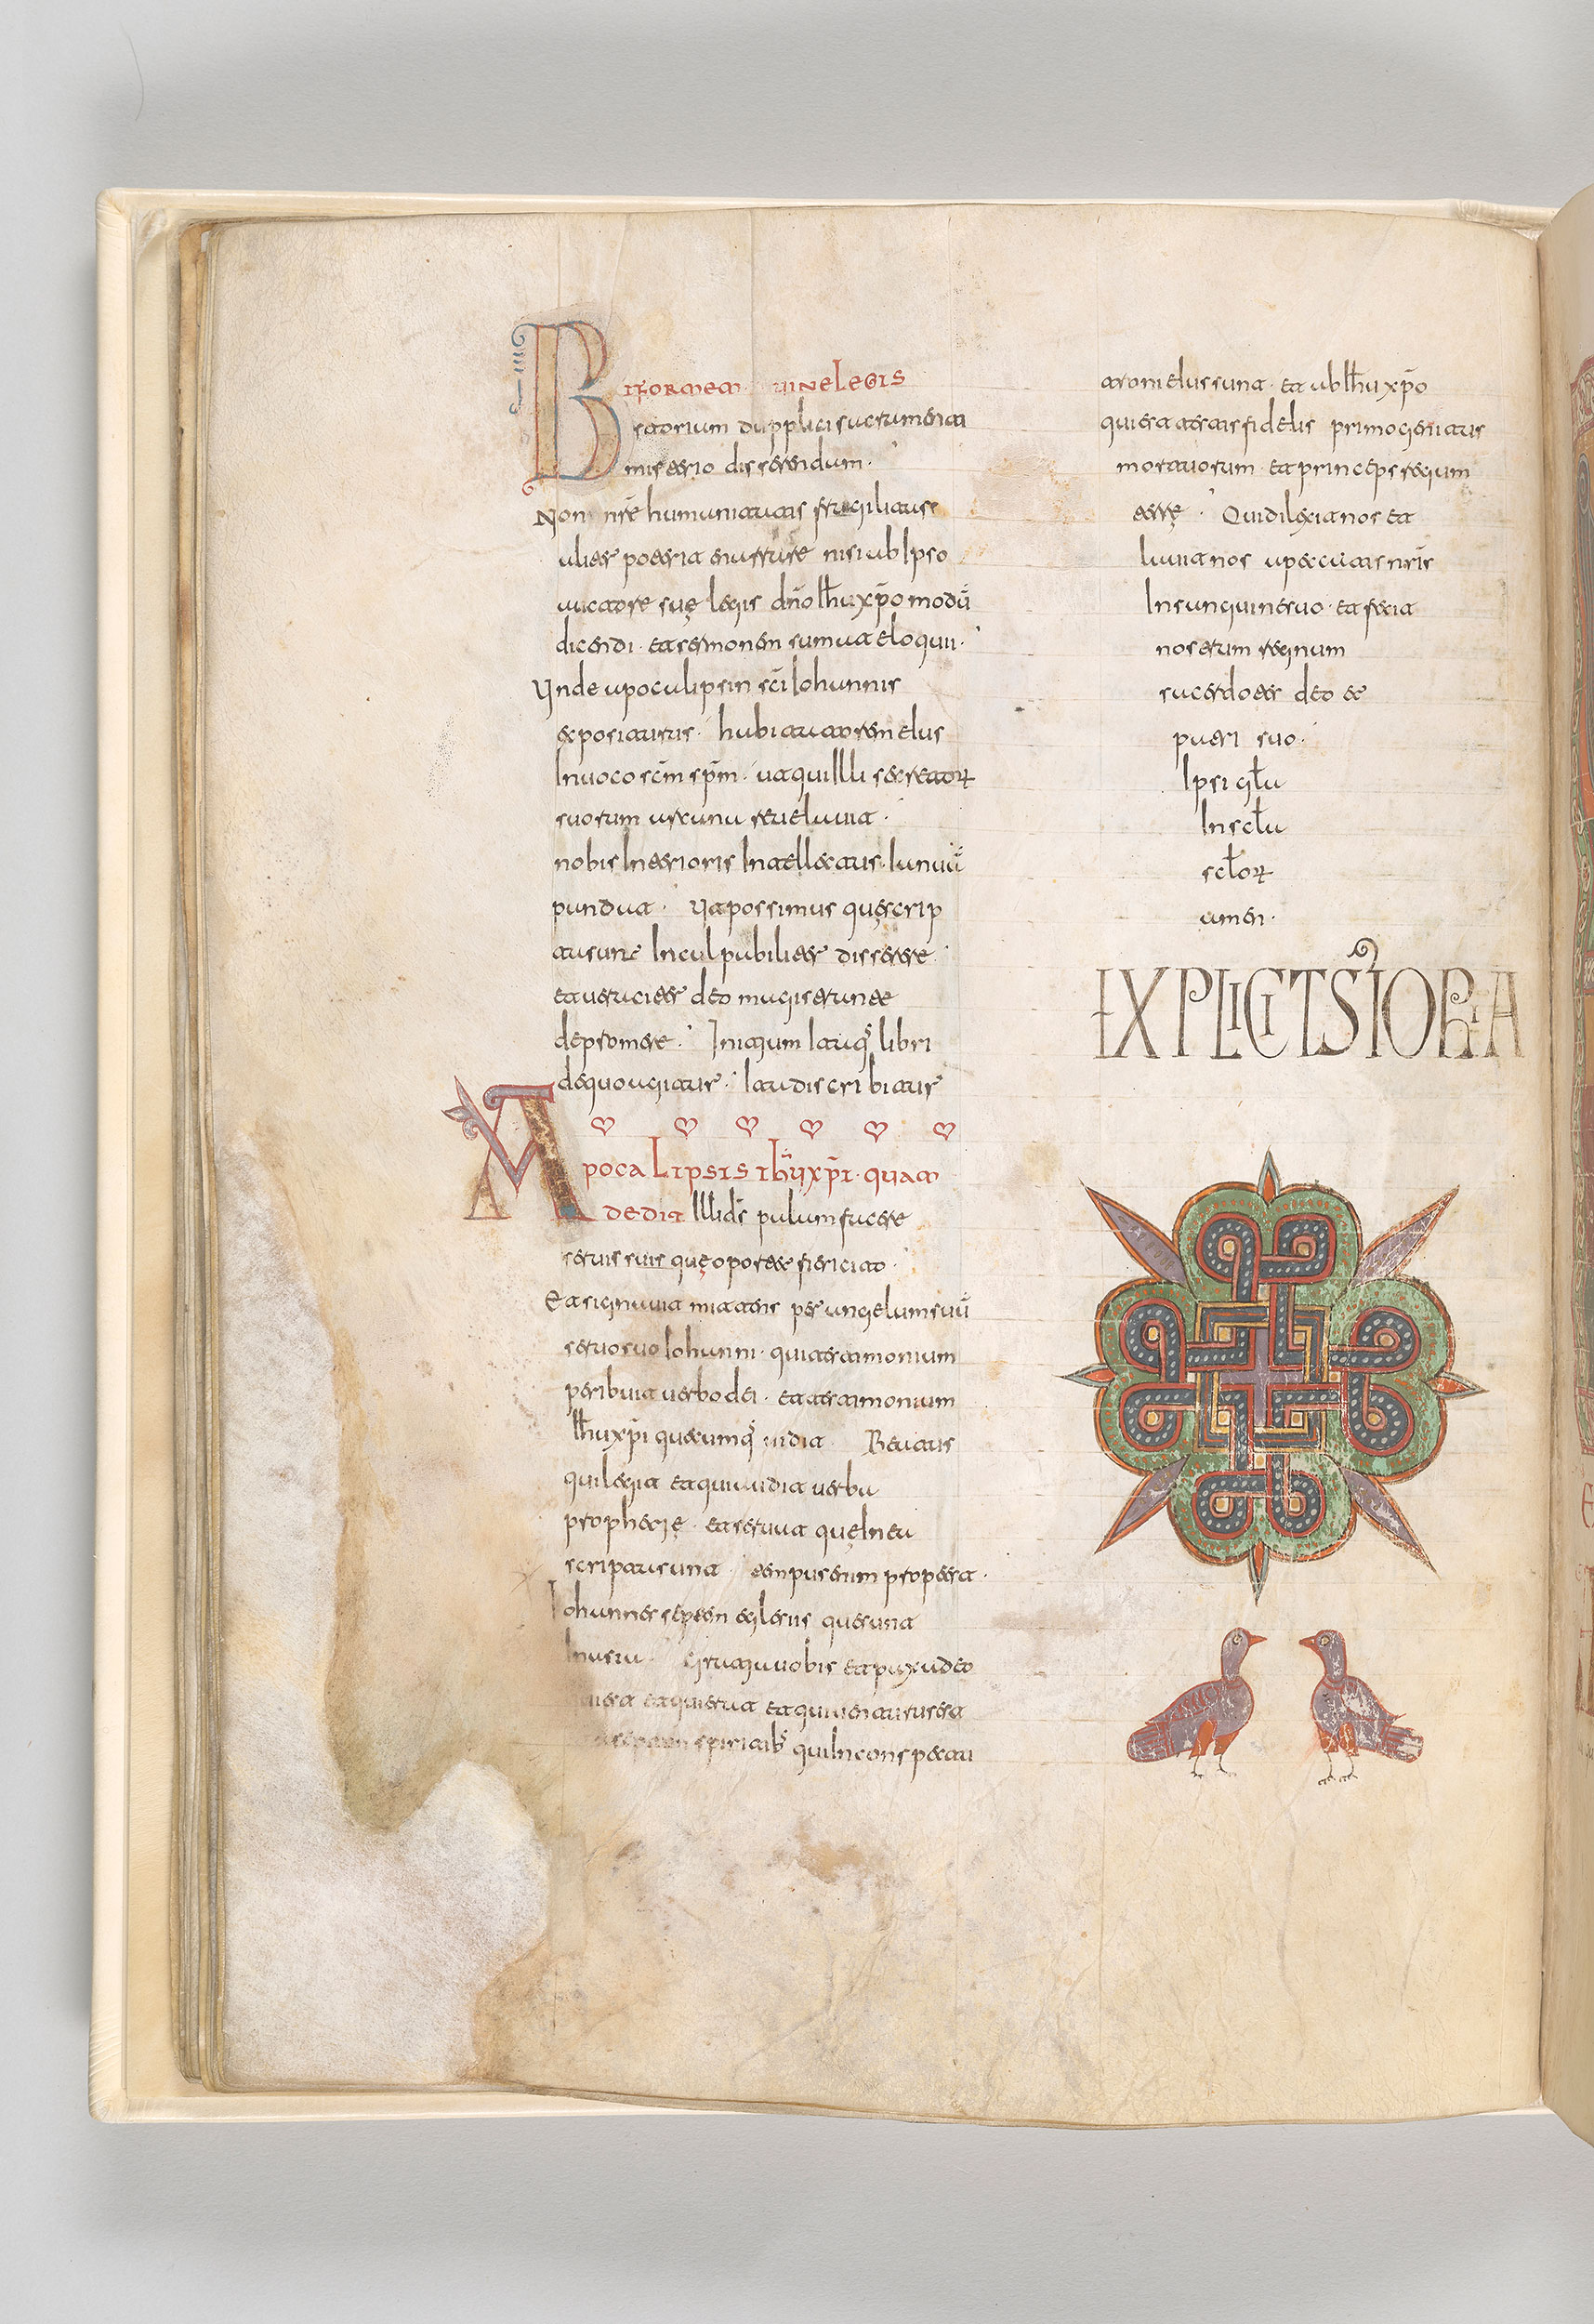 Biformem divine legis
storiam dupplici sacramenti
misterio disserendum.
Non nr̄e humanitatis fragilitas
valet enarrare nisi ab ipso
auctore suę legis dn̄o Ihū xp̄o modū
dicendi. et sermonem sumat eloquii.
Unde apocalipsin sc̄i Iohannis
expositurus. habitatorem eius
Invoco sc̄m sp̄m. ut qui illi secretor
suorum arcana revelavit.
nobis Interioris Intellectus. Ianuā
pandat. Ut possimus quę scrip
ta sunt Inculpabiliter disserere.
et veraciter deo magistrante
depromere. Initium Itaq; libri
de quo agitur. Ita discribitur
Apocalipsis ihū xp̄i. quam
dedit Illi ds̄ palam facere
servis suis quę oportet fieri cito.
Et signavit mittens per angelum suū
servo suo Iohanni. qui testimonium
peribuit verbo dei. et testimonium
Ihū xp̄i quecumq; vidit Beatus
qui legit et qui audit verba
prophetię. et servat quę In ea
scripta sunt tempus enim prope est.
Iohannes septem eglesiis que sunt
In asia. Gratia vobis et pax a deo
qui est et qui erat et qui venturus est
septem spiritib; qui In conspectu
troni eius sunt. et ab Ihū xp̄o
qui est testis fidelis primogenitus
mortuorum et princeps regum
terrę. Qui dilexit nos et
lavit nos a peccatis nr̄is
In sanguine suo. et fecit
nostrum regnum
sacerdotes deo et
patri suo.
Ipsi gl̄a
In scl̄a
scl̄or
amen.
EXPLICIT STORIA